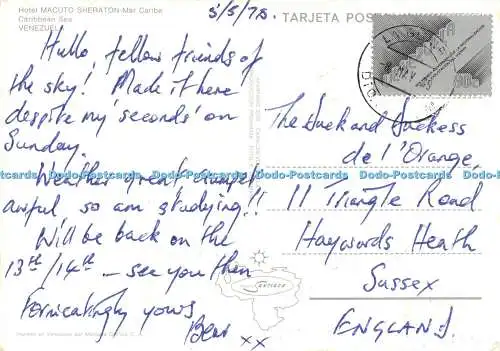 Hotel MACUTO SHERATON-Mar Caribe
Caribbean Sea
VENEZUELA
TARJETA POS
5/5/78.
Hullo, fellow friends of
the sky! Made it here
despite my 'seconds' on
Sunday.
Weather great
awful, so am studying!!
Will be back on the
13th/14th – see you then
Fornicatingly yours
Bear xx
The Duck and Duckess
de l'Orange,
11 Triangle Road
Haywards Heath
Sussex
ENGLAND.
Dodo-Postcards Dodo-Postcards Dodo-Postcards Dodo-Postcards